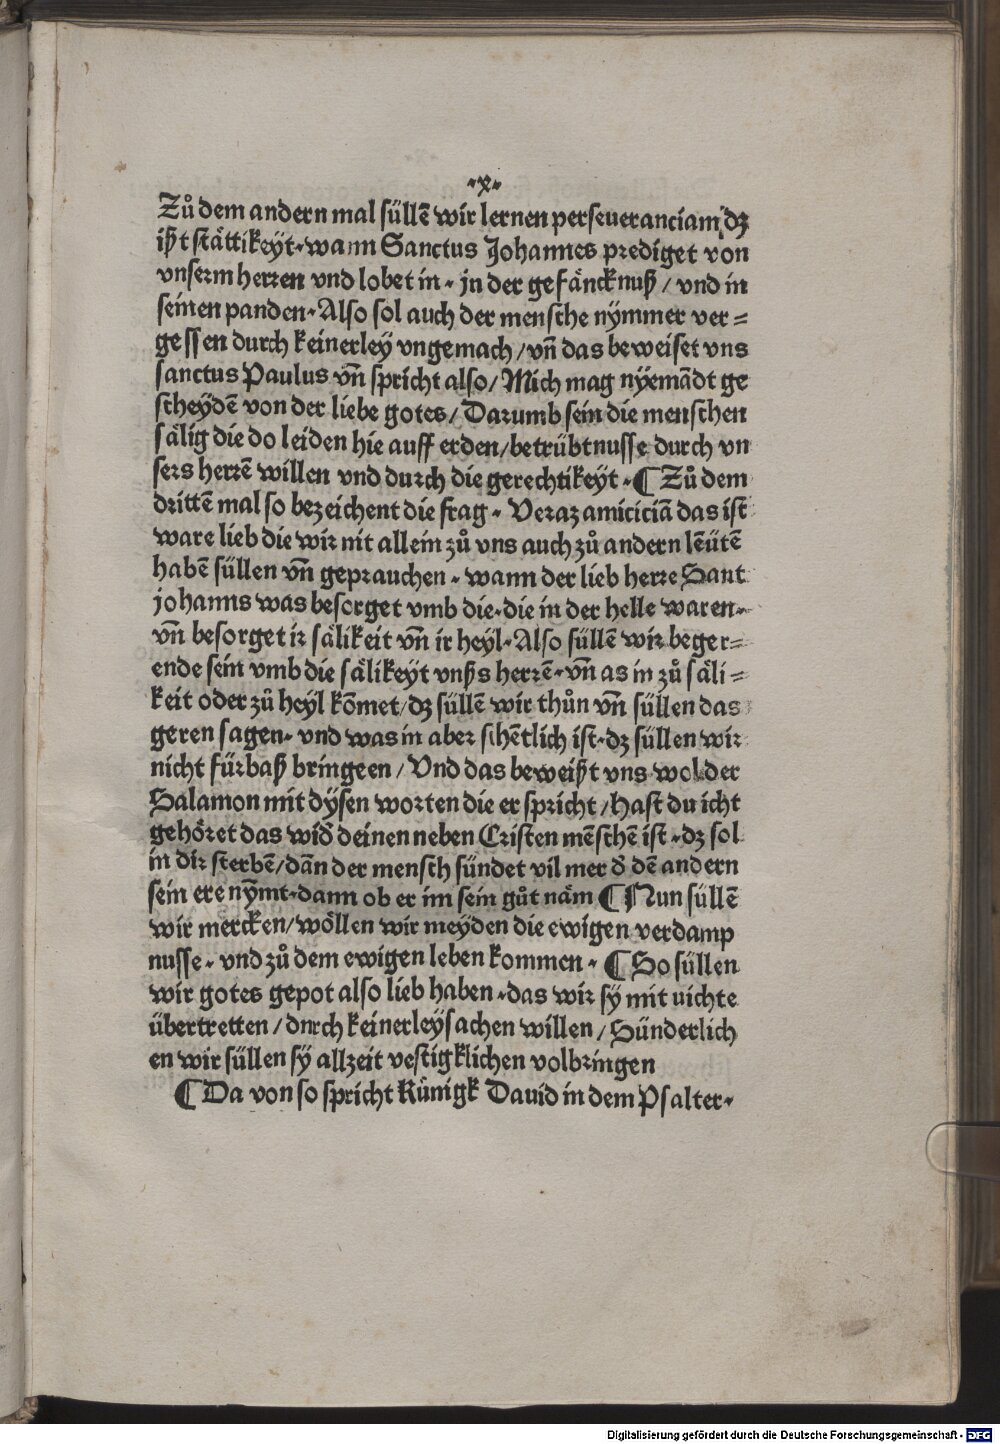 ·x·
Zů dem andern mal süllẽ wir lernen perseueranciam dz
ißt stättikeyt· wann Sanctus Johannes prediget von
vnserm herren vnd lobet in· jn der gefäncknuß / vnd in
seinen panden· Also sol auch der mensche nymmer ver=
gessen durch keinerley vngemach / vñ das beweiset vns
sanctus Paulus vñ spricht also / Mich mag nyemãdt ge
scheydẽ von der liebe gotes / Darumb sein die menschen
sälig die do leiden hie auff erden / betrübtnusse durch vn
sers herrẽ willen vnd durch die gerechtikeyt· ¶ Zů dem
drittẽ mal so bezeichent die frag· Veraz amiciciã das ist
ware lieb die wir nit allein zů vns auch zů andern lẽütẽ
habẽ süllen vñ geprauchen· wann der lieb herre Sant
johanns was besorget vmb die· die in der helle waren·
vñ besorget ir sälikeit vñ ir heyl· Also süllẽ wir beger=
ende sein vmb die sälikeyt vnßs herrẽ· vñ as in zů säli=
keit oder zů heyl kõmet / dz süllẽ wir thůn vñ süllen das
geren sagen· vnd was in aber schẽtlich ist· dz süllen wir
nicht fürbaß bringeen / Vnd das beweißt vns wol der
Salamon mit dÿsen worten die er spricht / hast du icht
gehöret das wid̃ deinen neben Cristen mẽschẽ ist· dz sol
in dir sterbẽ / dãn der mensch sündet vil mer d̃ dẽ andern
sein ere nỹmt· dann ob er im sein gůt näm ¶ Nun süllẽ
wir mercken / wöllen wir meyden die ewigen verdamp
nusse· vnd zů dem ewigen leben kommen· ¶ So süllen
wir gotes gepot also lieb haben· das wir sy mit uichte
übertretten / dnrch keinerley sachen willen / Sünderlich
en wir süllen sÿ allzeit vestigklichen volbringen
¶ Da von so spricht Künigk Dauid in dem Psalter·
Digitalisierung gefördert durch die Deutsche Forschungsgemeinschaft - DFG